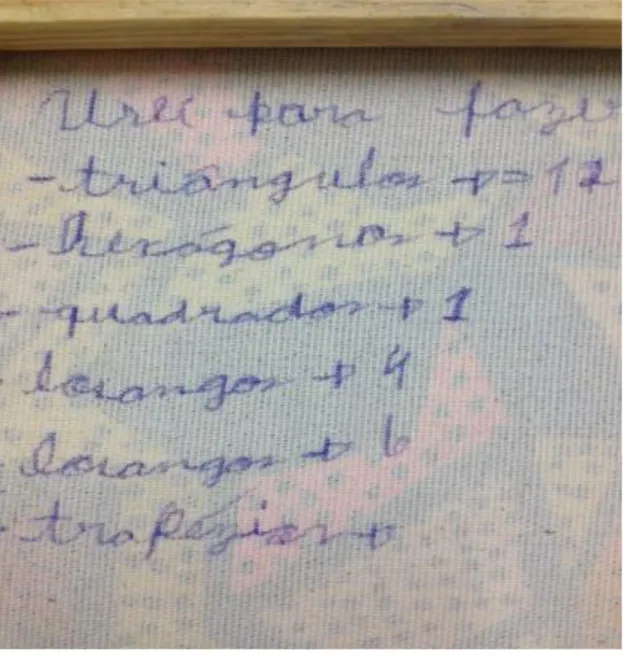 Usei para fazer
- triângulos → = 12
- hexágonos → 1
- quadrados → 1
- losangos → 4
- losangos → 6
- trapézios →